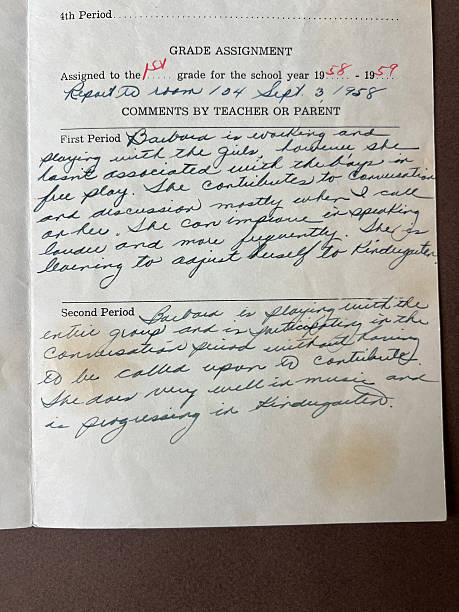 4th Period
GRADE ASSIGNMENT
Assigned to the 1st grade for the school year 1958 - 1959
Report to room 104 Sept. 3, 1958
COMMENTS BY TEACHER OR PARENT
First Period Barbara is working and
playing with the girls, however she
hasn't associated with the boys in
free play. She contributes to conversation
and discussion mostly when I call
on her. She can improve in speaking
louder and more frequently. She is
learning to adjust herself to Kindergarten.
Second Period Barbara is playing with the
entire group and is participating in the
conversation period without having
to be called upon to contribute.
She does very well in music and
is progressing in Kindergarten.